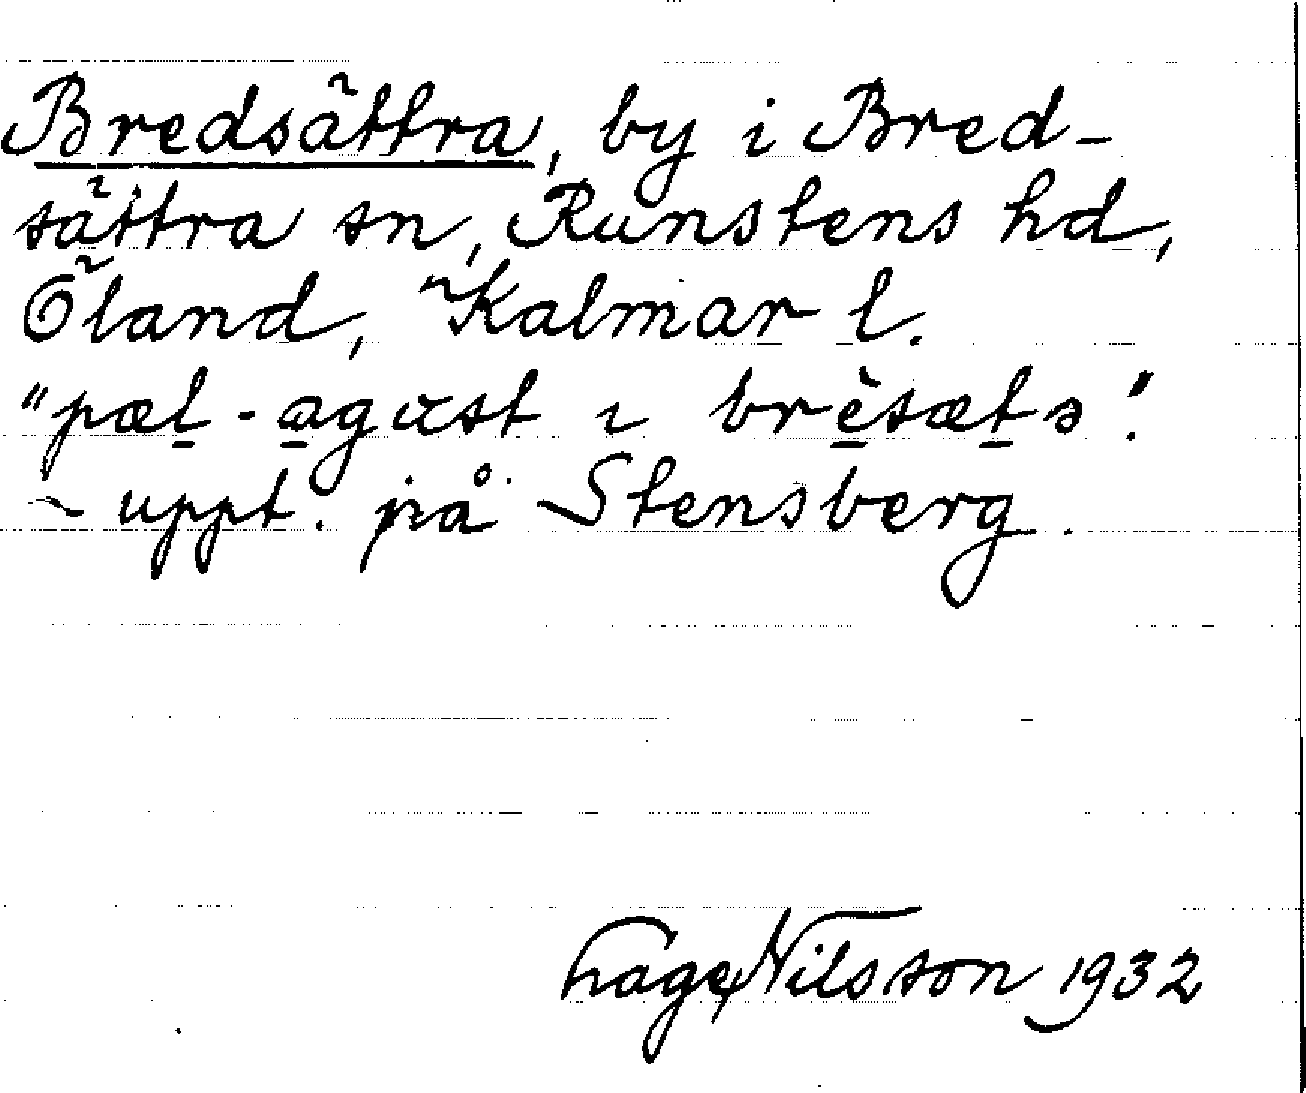 Bredsättra, by i Bred-
sättra sn, Runstens hd,
Öland, Kalmar l.
"pæḻ-a̱gɑst ı brè̱sæṯə".
~ uppt. på Stensberg.
Hage Nilsson 1932